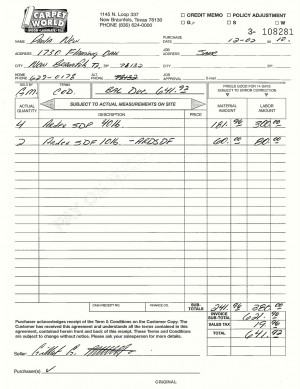 CARPET WORLD
1145 N. Loop 337
New Braunfels, Texas 78130
PHONE (830) 624-0000
CREDIT MEMO POLICY ADJUSTMENT
G R W
3- 108281
NAME
PURCHASE DATE 12-02
ADDRESS 1730
JOB ADDRESS Same
CITY New Braunfels TX ZIP 78132
HOME PHONE 629-0178 ALT. PHONE
JOB APPROVAL E-mail
SOLD BY TERMS
C.O.D. BAL Due 641.92
PRICES GOOD FOR 14 DAYS
SUBJECT TO ERROR CORRECTION
ACTUAL QUANTITY SUBJECT TO ACTUAL MEASUREMENTS ON SITE MATERIAL AMOUNT LABOR AMOUNT
DESCRIPTION PRICE
4 SDF 4016 181.96 300.00
2 SDF 1016 - 60.00 80.00
CASH RECEIPT NO. FINANCE CO. SUB-TOTALS 241.96 380.00
Purchaser acknowledges receipt of Term & Conditions on the Customer Copy. The
Customer has received this agreement and understands all the terms contained in
this agreement, contained herein front and back of this receipt. These Terms and Conditions
are subject to change without notice. Please ask your salesperson for more details.
INVOICE SUB-TOTAL 621.96
SALES TAX 19.96
TOTAL 641.92
Seller
Purchaser(s)
ORIGINAL